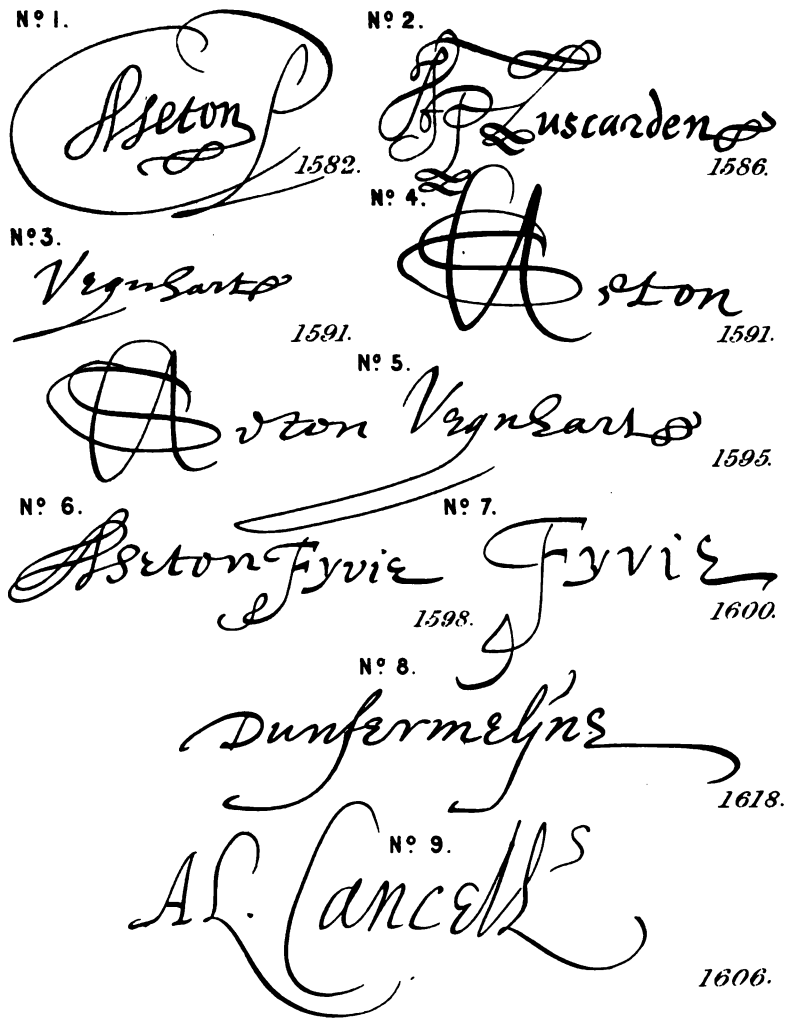 Nº 1.
ASeton
1582.
Nº 2.
A P Luscarden
1586.
Nº 3.
Vrquhart
1591.
Nº 4.
ASeton
1591.
Nº 5.
ASeton Vrquhart
1595.
Nº 6.
ASeton Fyvie
1598.
Nº 7.
Fyvie
1600.
Nº 8.
Dunfermelyne
1618.
Nº 9.
Al. Cancells
1606.